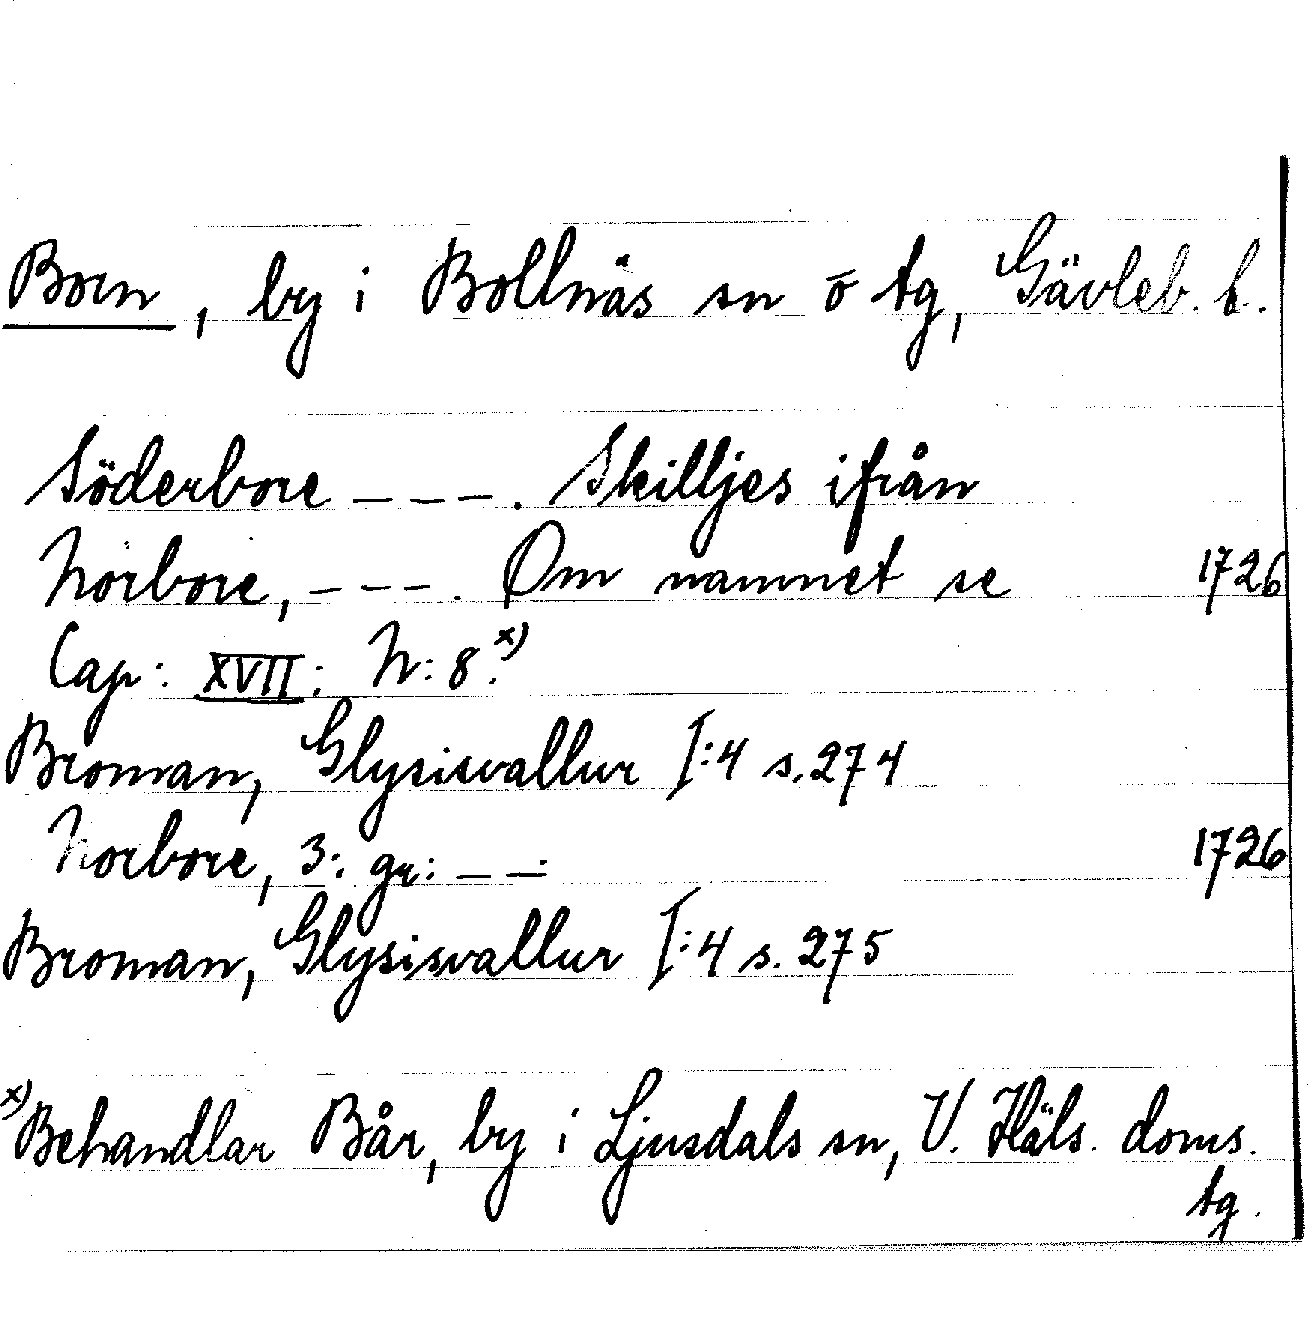 Born, by i Bollnäs sn o tg, Gävleb. l.
Söderbore – – –. Skilljes ifrån
Norbore, – – –. Om namnet se 1726
Cap: XVII: N: 8.x)
Broman, Glysisvallur I:4 s. 274
Norbore, 3: gr: – – 1726
Broman, Glysisvallur I:4 s. 275
x) Behandlar Bår, by i Ljusdals sn, V. Häls. doms.
tg.